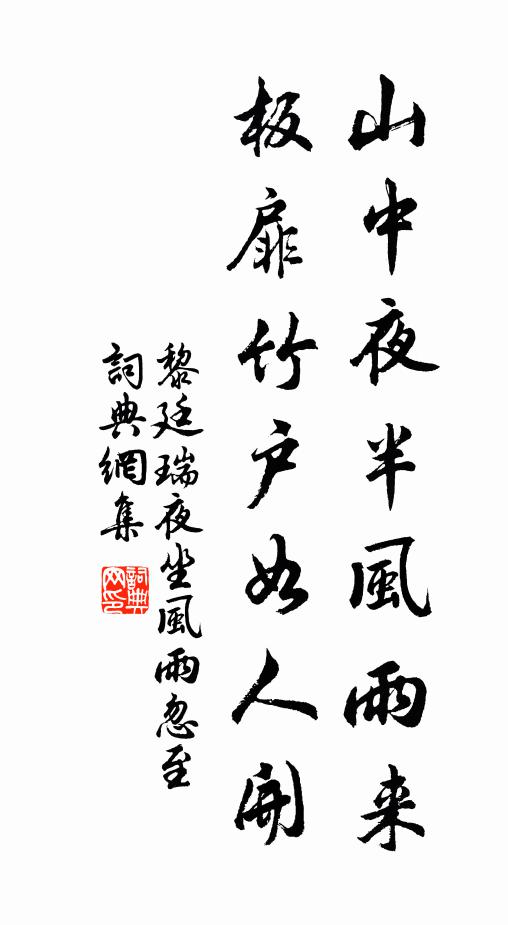 山中夜半風雨来
板扉竹户如人開
黎廷瑞夜坐風雨忽至
詞典網集
詞典網印